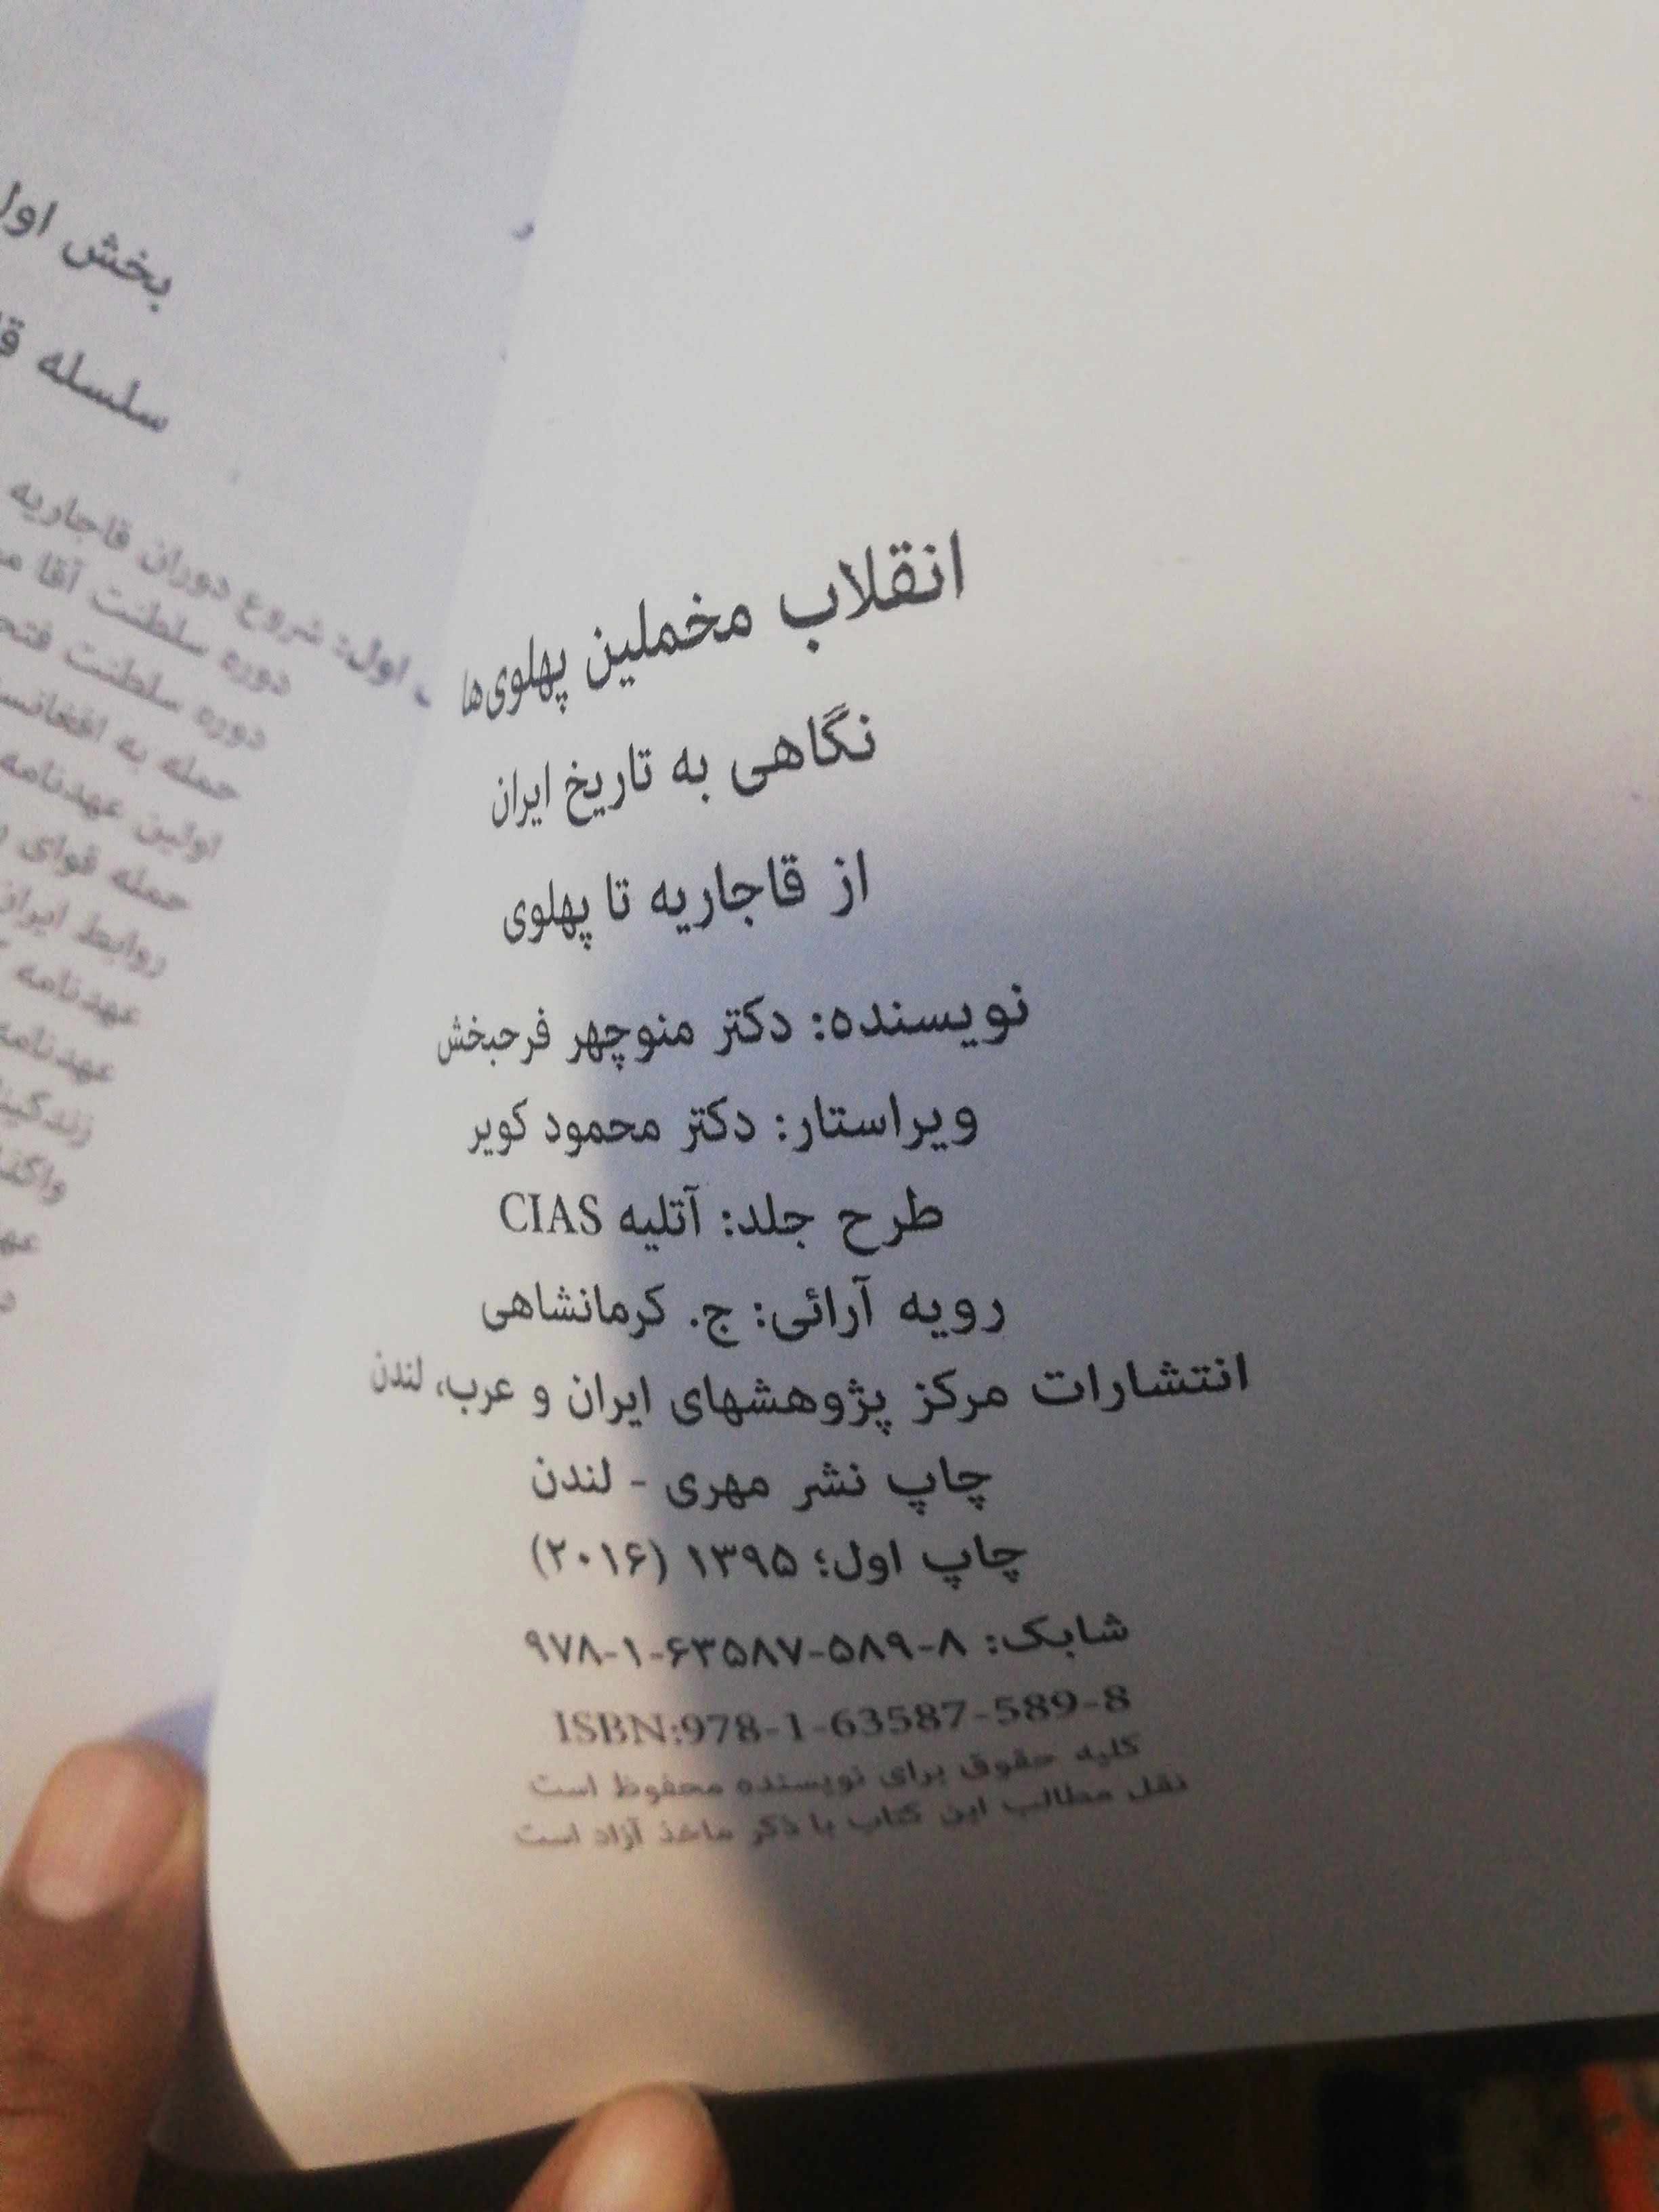 انقلاب مخملین پهلوی‌ها
نگاهی به تاریخ ایران
از قاجاریه تا پهلوی
نویسنده: دکتر منوچهر فرحبخش
ویراستار: دکتر محمود کویر
طرح جلد: آتلیه CIAS
رویه آرائی: ج. کرمانشاهی
انتشارات مرکز پژوهشهای ایران و عرب، لندن
چاپ نشر مهری - لندن
چاپ اول؛ ۱۳۹۵ (۲۰۱۶)
شابک: ۸-۵۸۹-۶۳۵۸۷-۱-۹۷۸
ISBN:978-1-63587-589-8
کلیه حقوق برای نویسنده محفوظ است
نقل مطالب این کتاب با ذکر ماخذ آزاد است
بخش اول
سلسله
اول: شروع دوران قاجاریه
دوره سلطنت آقا
دوره سلطنت
حمله به
اولین عهدنامه
حمله قوای
روابط ایران
عهدنامه
عهدنامه